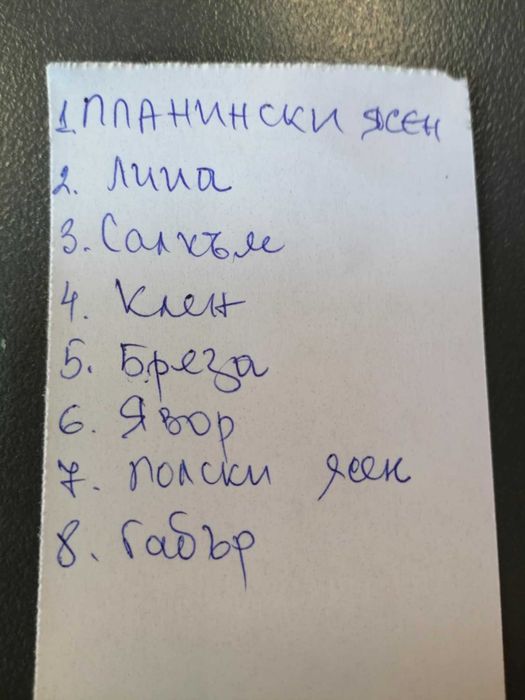 1. ПЛАНИНСКИ ЯСЕН
2. Липа
3. Салкъм
4. Клен
5. Бреза
6. Явор
7. полски ясен
8. Габър